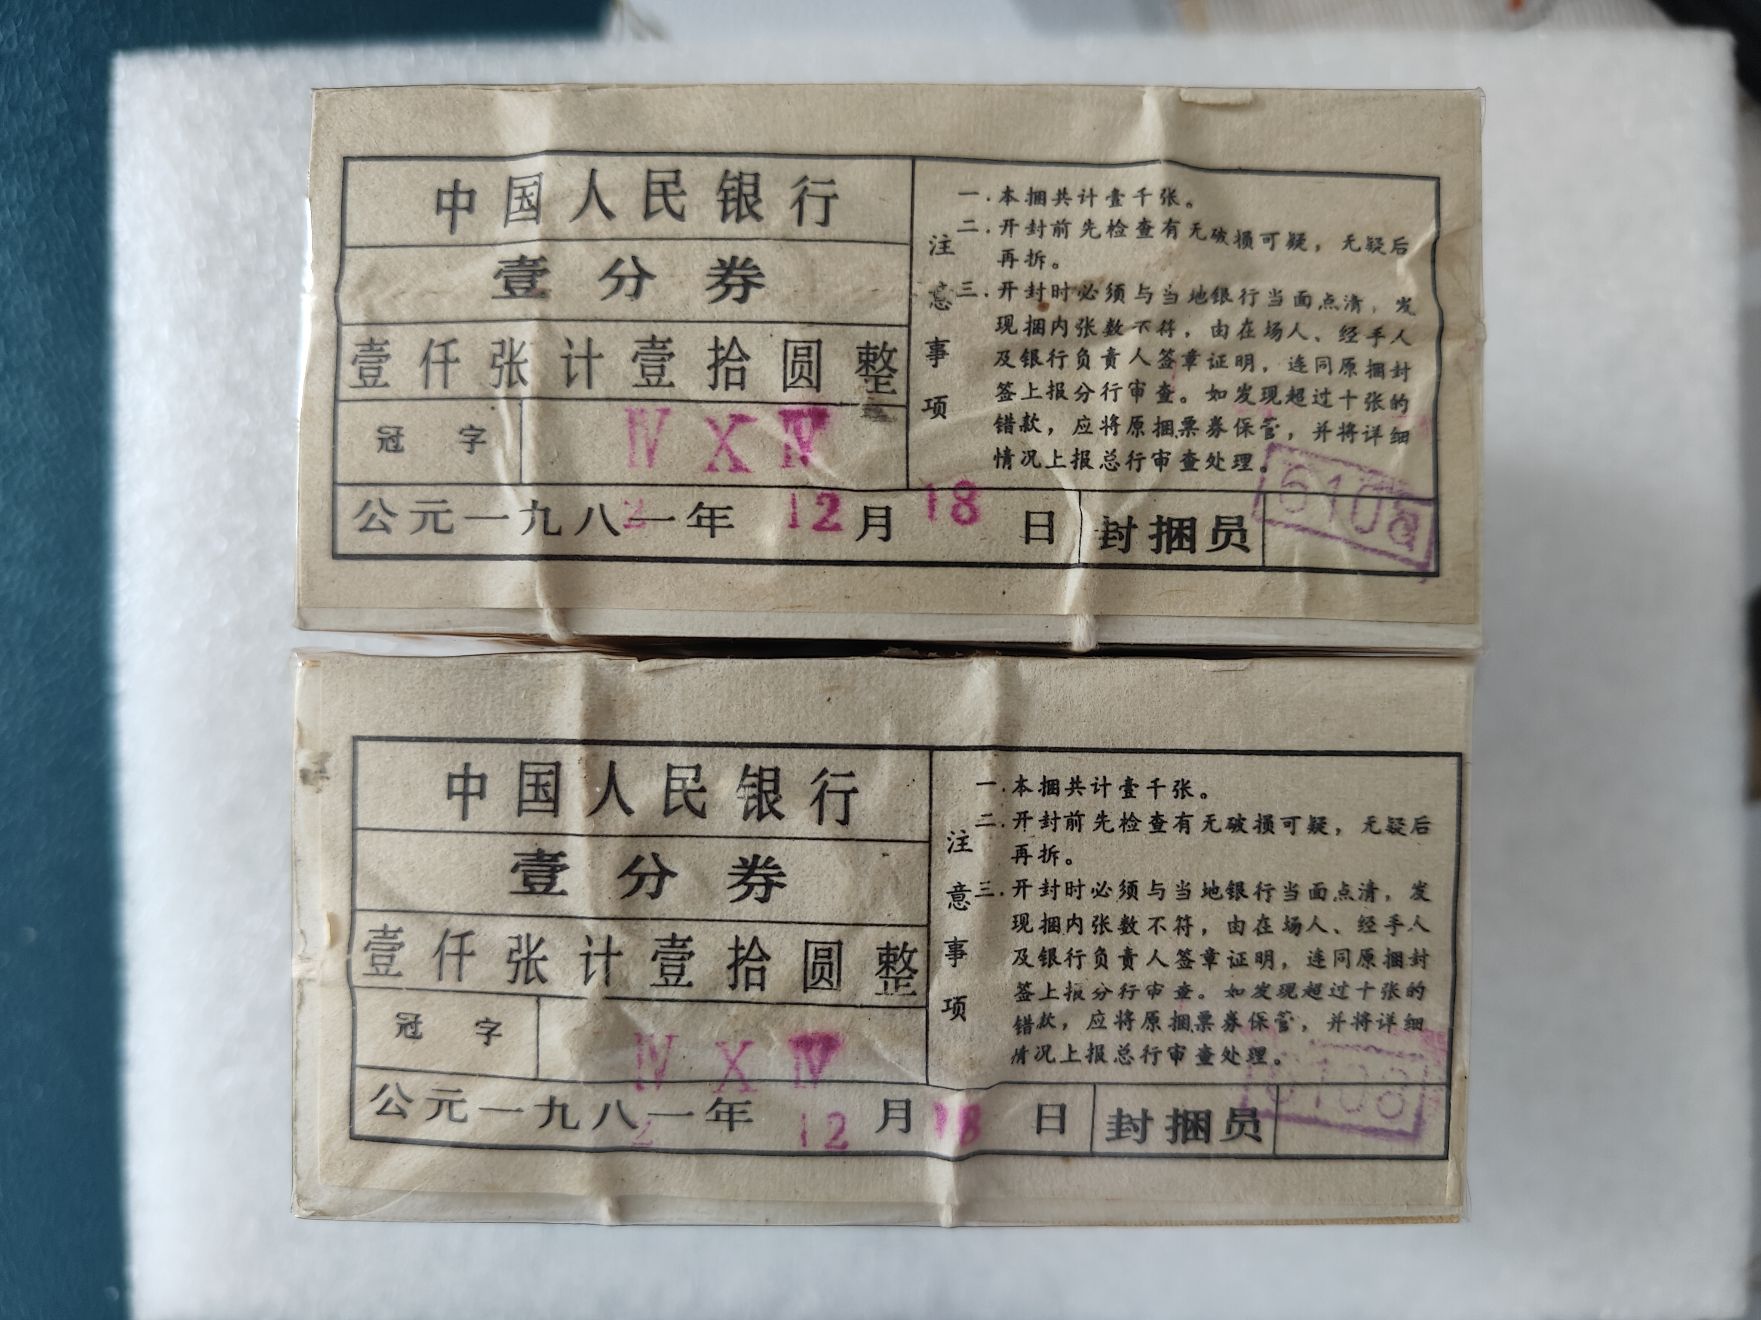 中国人民银行
壹分券
壹仟张计壹拾圆整
冠字 Ⅳ Ⅹ Ⅳ
公元一九八一年 2 12月18日 封捆员
注意事项
一.本捆共计壹千张。
二.开封前先检查有无破损可疑,无疑后
再拆。
三.开封时必须与当地银行当面点清,发
现捆内张数不符,由在场人、经手人
及银行负责人签章证明,连同原捆封
签上报分行审查。如发现超过十张的
错款,应将原捆票券保管,并将详细
情况上报总行审查处理。
中国人民银行
壹分券
壹仟张计壹拾圆整
冠字 Ⅳ Ⅹ Ⅳ
公元一九八一年 2 12月18日 封捆员
6108
注意事项
一.本捆共计壹千张。
二.开封前先检查有无破损可疑,无疑后
再拆。
三.开封时必须与当地银行当面点清,发
现捆内张数不符,由在场人、经手人
及银行负责人签章证明,连同原捆封
签上报分行审查。如发现超过十张的
错款,应将原捆票券保管,并将详细
情况上报总行审查处理。